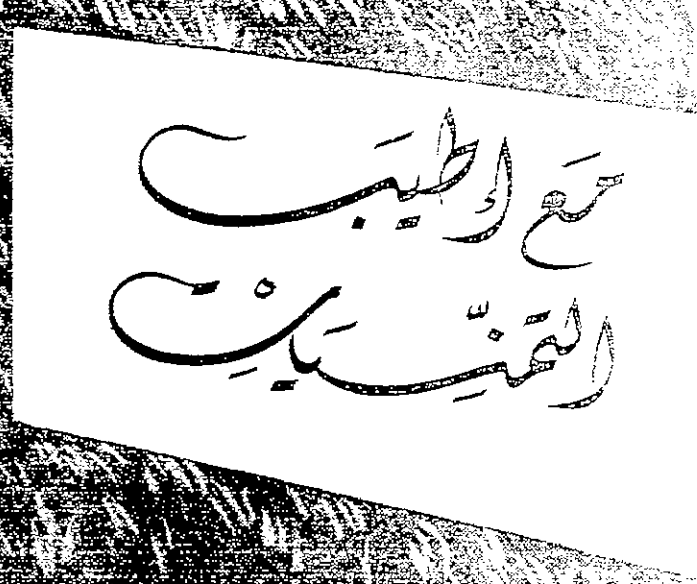 مَع أطيَب
التمنِّيَاتِ